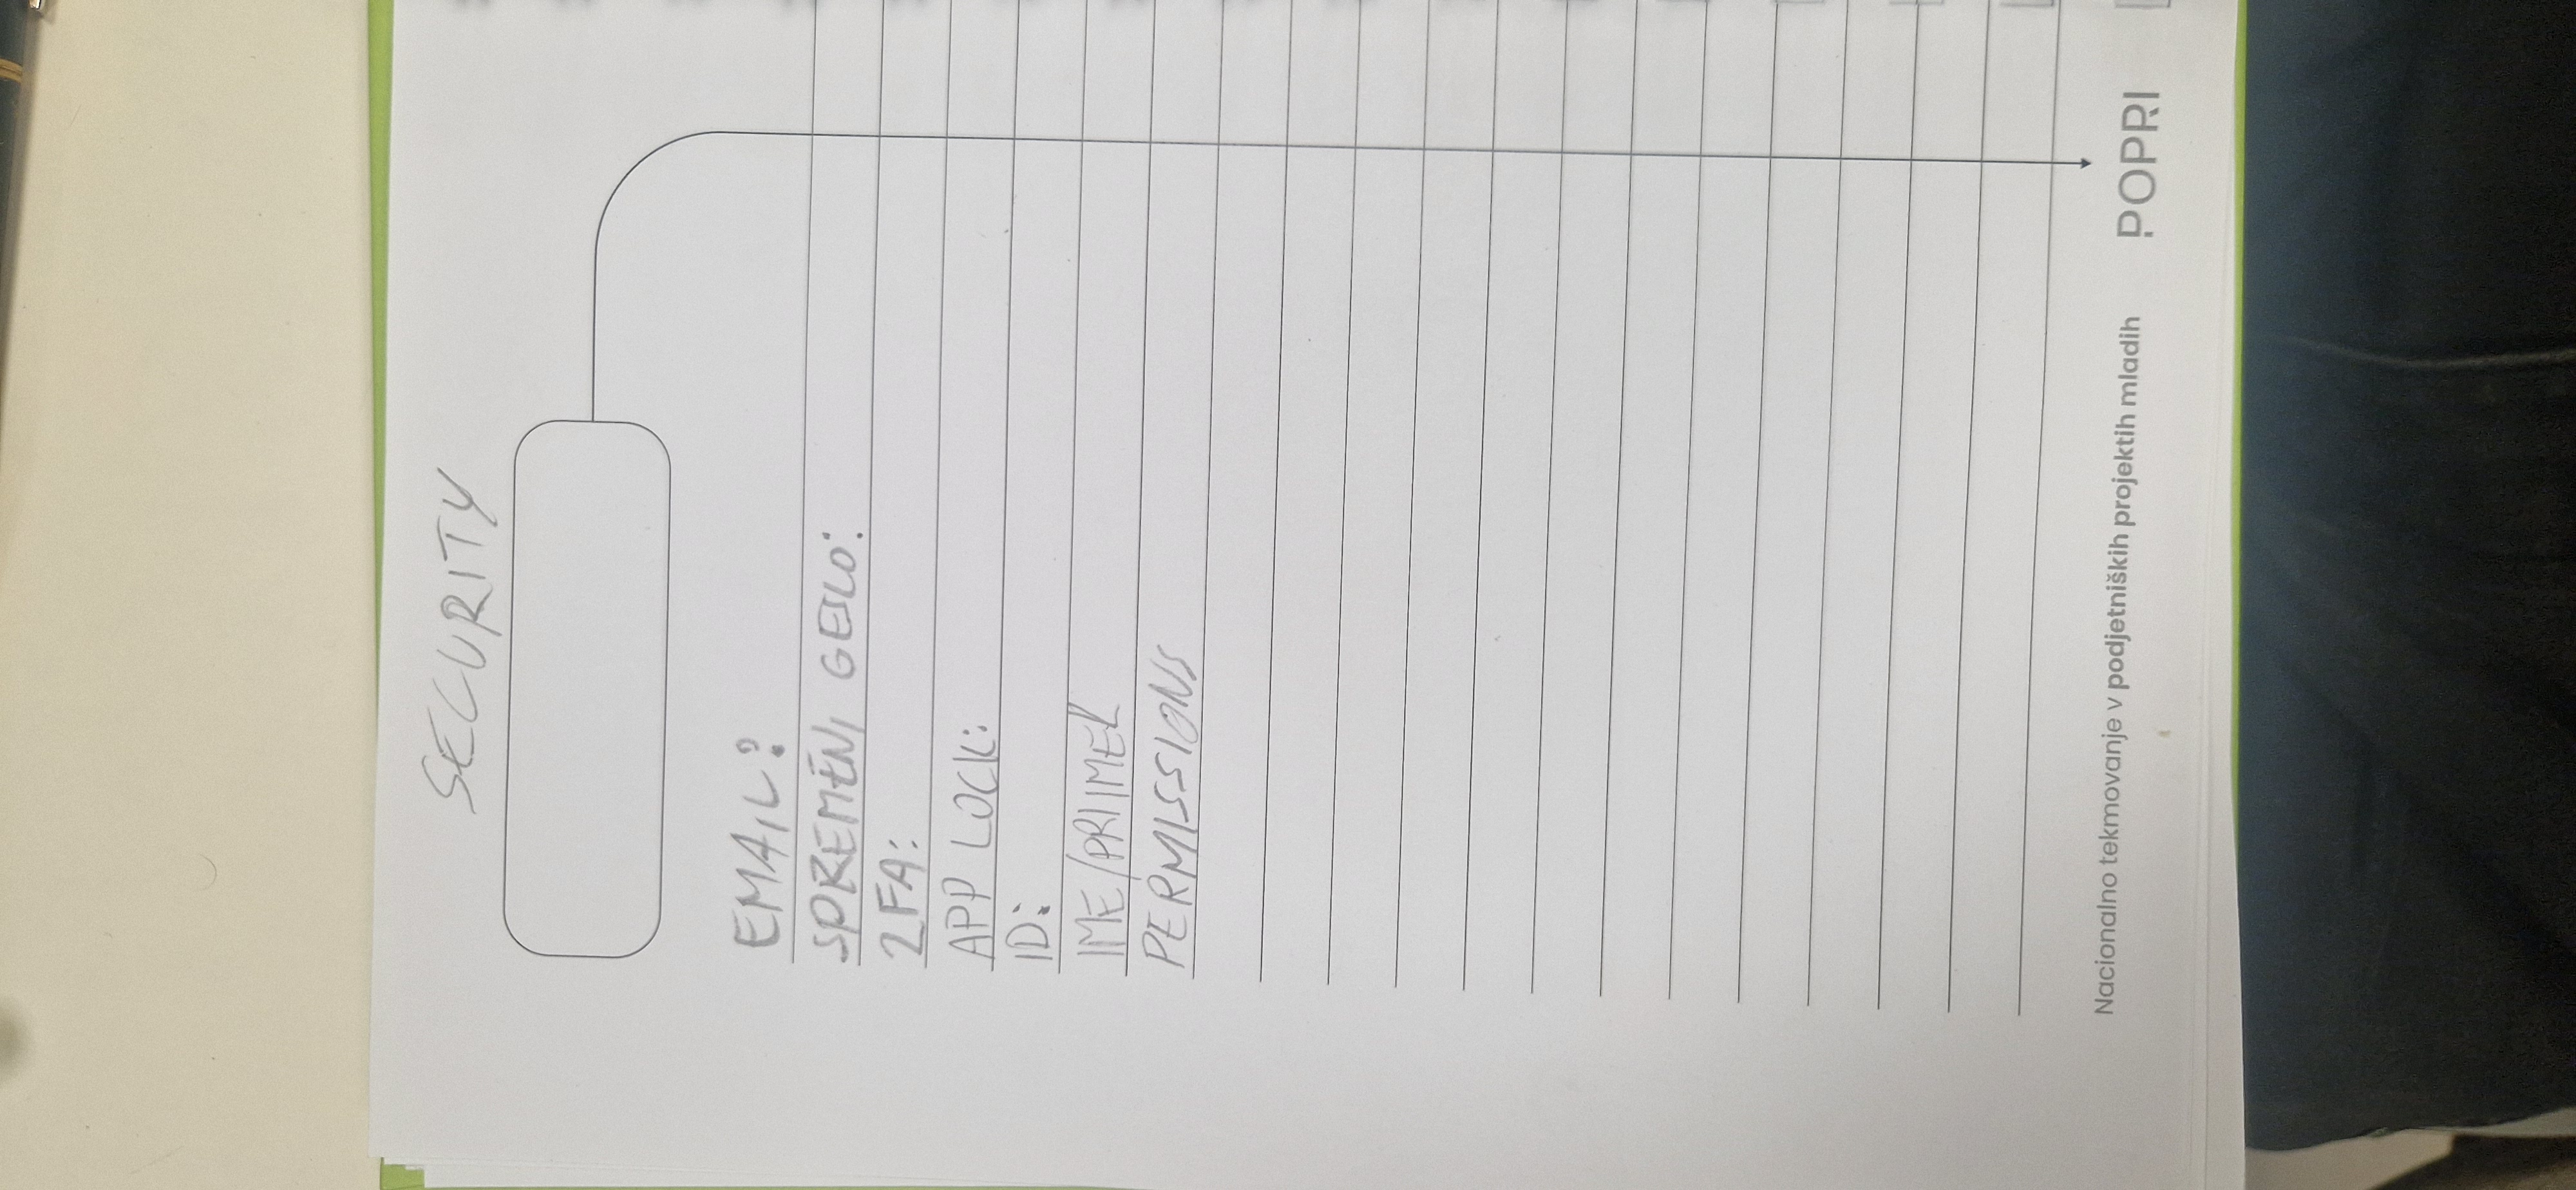 SECURITY
EMAIL:
SPREMENI GESLO:
2FA:
APP LOCK:
ID:
IME/PRIIMEK
PERMISSIONS
Nacionalno tekmovanje v podjetniških projektih mladih
POPRI